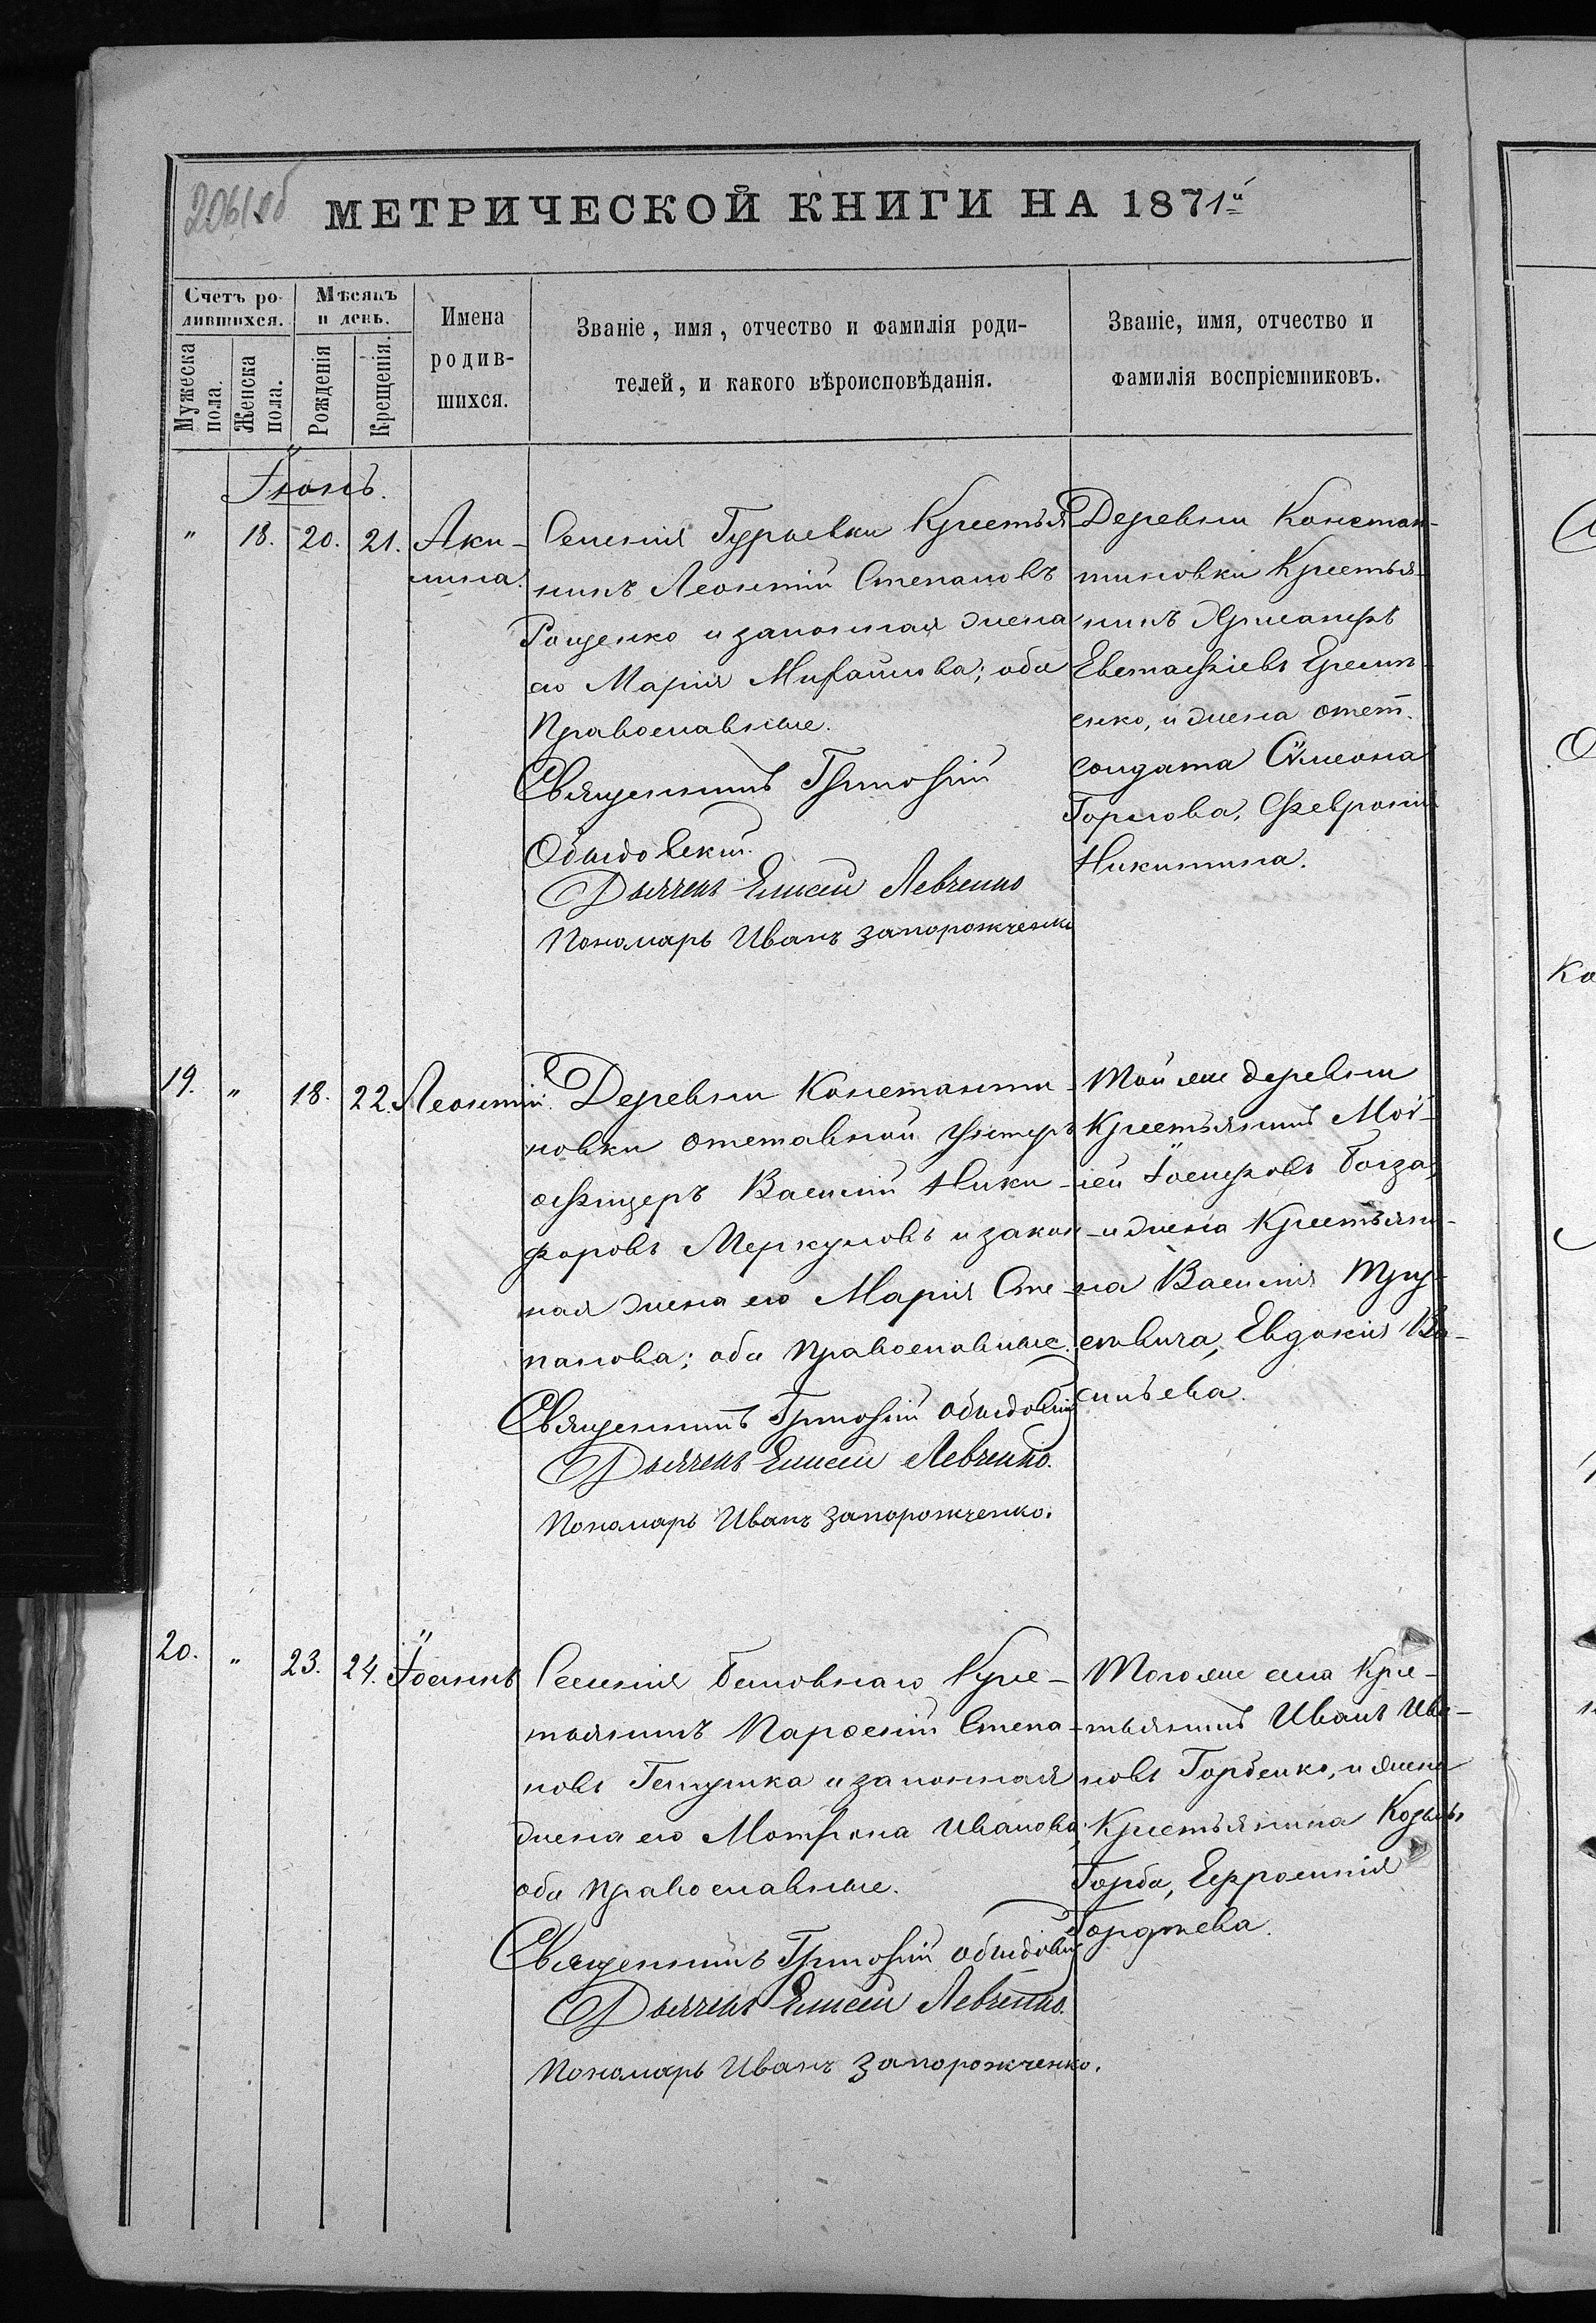 206 об
МЕТРИЧЕСКОЙ КНИГИ НА 1871й
Счетъ ро-
дившихся.
Мѣсяцъ
и день.
Мужеска
пола.
Женска
пола.
Рожденія
Крещенія.
Имена
родив-
шихся.
Званіе, имя, отчество и фамилія роди-
телей, и какого вѣроисповѣданія.
Званіе, имя, отчество и
фамилія воспріемниковъ.
Іюнь.
" 18. 20. 21. Аки-
лина.
Селенія Гурьевки Крестья
нинъ Леонтій Степановъ
Рощенко и законная жена
его Марія Михаилова; оба
Православные.
Священникъ Григорій
Дьячекъ Елисей Левченко
Пономарь Иванъ Запорожченко
Деревни Констан-
тиновки Крестья-
нинъ
Евстафіевъ
енко, и жена отст.
солдата Сѵмеона
Горлова, Февронія
Никитина.
19. " 18. 22. Леонтій.
Деревни Константи-
новки отставной унтеръ
офицеръ Василій Ники-
форовъ Меркуловъ и закон
ная жена его Марія Сте-
панова; оба Православные.
Священникъ Григорій
Дьячекъ Елисей Левченко.
Пономарь Иванъ Запорожченко.
Той же деревни
Крестьянинъ Мої-
сей Іосифовъ
и жена Крестьяни-
на Василія
Евдокія Ва-
сильева.
20. " 23. 24. Іоаннъ
Селенія Кре-
стьянинъ Парфеній Степа-
новъ и законная
жена его Матрона Иванова
оба Православные.
Священникъ Григорій
Дьячекъ Елисей Левченко.
Пономарь Иванъ Запорожченко.
Того же села Кре-
стьянинъ Иванъ Ива-
новъ Горбенко, и жена
Крестьянина Козьмы
Горба, Евфросинія